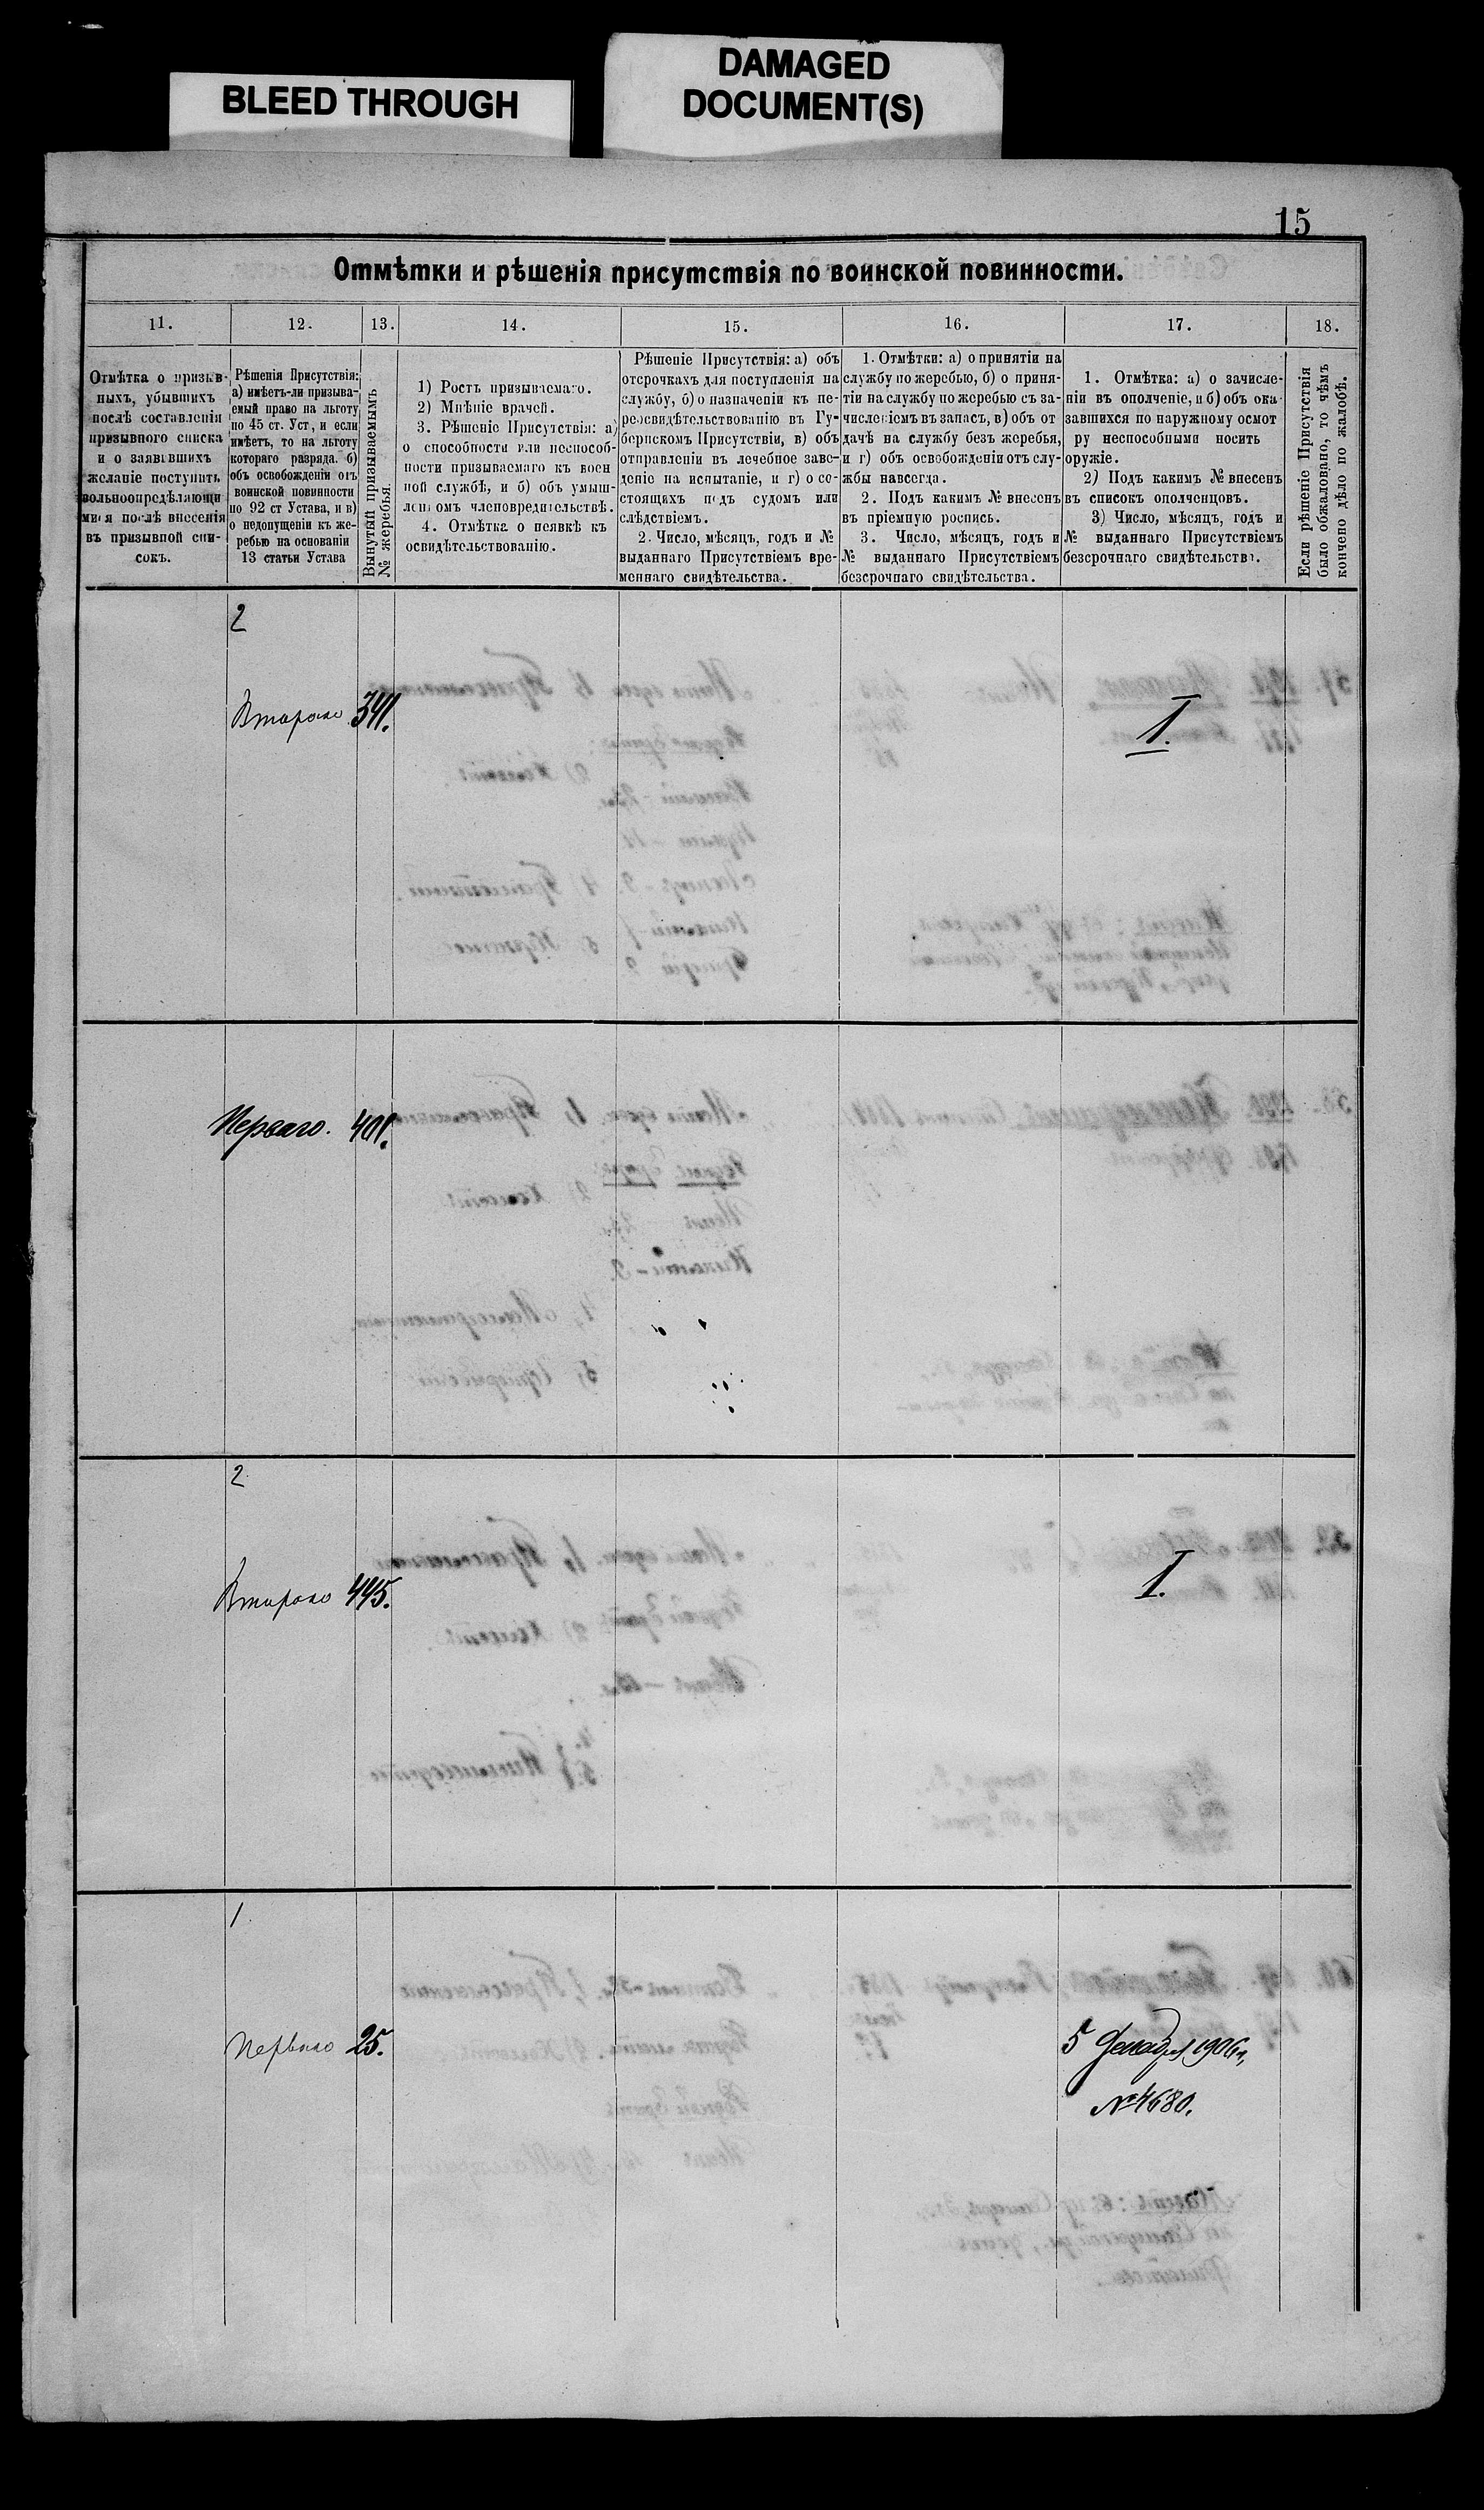 BLEED THROUGH
DAMAGED
DOCUMENT(S)
15
Отмѣтки и рѣшенія присутствія по воинской повинности.
11.
12.
13.
14.
15.
16.
17.
18.
Отмѣтка о призыв-
ныхъ, убывшихъ
послѣ составленія
призывного списка
и о заявившихъ
желаніе поступить
вольноопредѣляющи
мися послѣ внесенія
въ призывной спи-
сокъ.
Рѣшенія Присутствія:
а) имѣетъ-ли призыва-
емый право на льготу
по 45 ст. Уст, и если
имѣетъ, то на льготу
котораго разряда. б)
объ освобожденіи отъ
воинской повинности
по 92 ст Устава, и в)
о недопущеніи къ же-
ребью на основаніи
13 статьи Устава
Вынутый призываемымъ
№ жеребья.
1) Ростъ призываемаго.
2) Мнѣніе врачей.
3. Рѣшеніе Присутствія: а)
о способности или неспособ-
ности призываемаго къ воен
ной службѣ, и б) объ умыш-
ленномъ членовредительствѣ.
4. Отмѣтка о неявкѣ къ
освидѣтельствованію.
Рѣшеніе Присутствія: а) объ
отсрочкахъ для поступленія на
службу, б) о назначеніи къ пе-
реосвидѣтельствованію въ Гу-
бернскомъ Присутствіи, в) объ
отправленіи въ лечебное заве-
деніе на испытаніе, и г) о со-
стоящихъ подъ судомъ или
слѣдствіемъ.
2. Число, мѣсяцъ, годъ и №
выданнаго Присутствіемъ вре-
меннаго свидѣтельства.
1. Отмѣтки: а) о принятіи на
службу по жеребью, б) о приня-
тіи на службу по жеребью съ за-
численіемъ въ запасъ, в) объ от
дачѣ на службу безъ жеребья,
и г) объ освобожденіи отъ слу-
жбы навсегда.
2. Подъ какимъ № внесенъ
въ пріемную роспись.
3. Число, мѣсяцъ, годъ и
№ выданнаго Присутствіемъ
безсрочнаго свидѣтельства.
1. Отмѣтка: а) о зачисле-
ніи въ ополченіе, и б) объ ока-
завшихся по наружному осмот
ру неспособными носить
оружіе.
2) Подъ какимъ № внесенъ
въ списокъ ополченцовъ.
3) Число, мѣсяцъ, годъ и
№ выданнаго Присутствіемъ
безсрочнаго свидѣтельства.
Если рѣшеніе Присутствія
было обжаловано, то чѣмъ
кончено дѣло по жалобѣ.
2
Второго 341.
I.
Перваго. 401.
2
Второго 445.
I.
1
Перваго 25.
5 Декабря 1906 г,
№ 4680.